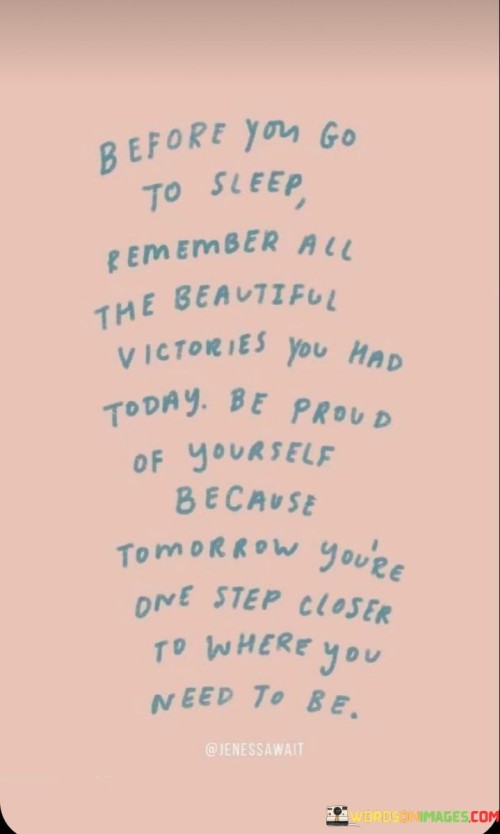 BEFORE you GO
TO SLEEP,
REMEMBER ALL
THE BEAUTIFUL
VICTORIES YOU HAD
TODAY. BE PROUD
OF YOURSELF
BECAUSE
TOMORROW YOU'RE
ONE STEP CLOSER
TO WHERE YOU
NEED TO BE.
@JENESSAWAIT
WORDSONIMAGES.COM